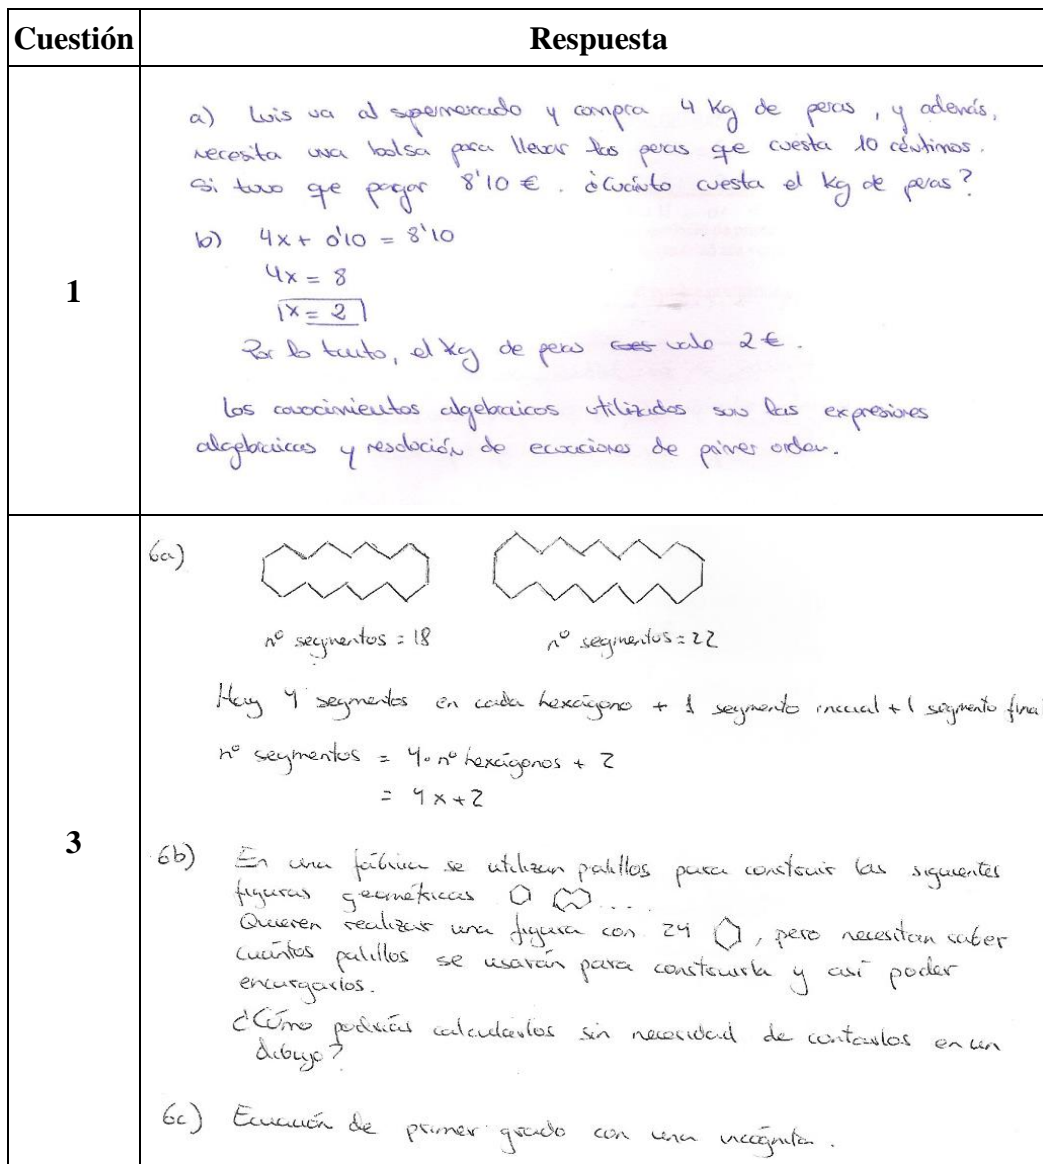 Cuestión Respuesta
1
a) Luis va al supermercado y compra 4 Kg de peras, y además,
necesita una bolsa para llevar las peras que cuesta 10 céntimos.
Si tuvo que pagar 8'10 €. ¿Cuánto cuesta el Kg de peras?
b) 4x + 0'10 = 8'10
4x = 8
x = 2
Por lo tanto, el Kg de peras vale 2 €.
Los conocimientos algebraicos utilizados son las expresiones
algebraicas y resolución de ecuaciones de primer orden.
3
6a)
nº segmentos = 18 nº segmentos = 22
Hay 4 segmentos en cada hexágono + 1 segmento inicial + 1 segmento final
nº segmentos = 4 · nº hexágonos + 2
= 4x + 2
6b) En una fábrica se utilizan palillos para construir las siguientes
figuras geométricas ...
Quieren realizar una figura con 24 , pero necesitan saber
cuántos palillos se usarán para construirla y así poder
encargarlos.
¿Cómo podrías calcularlos sin necesidad de contarlos en un
dibujo?
6c) Ecuación de primer grado con una incógnita.